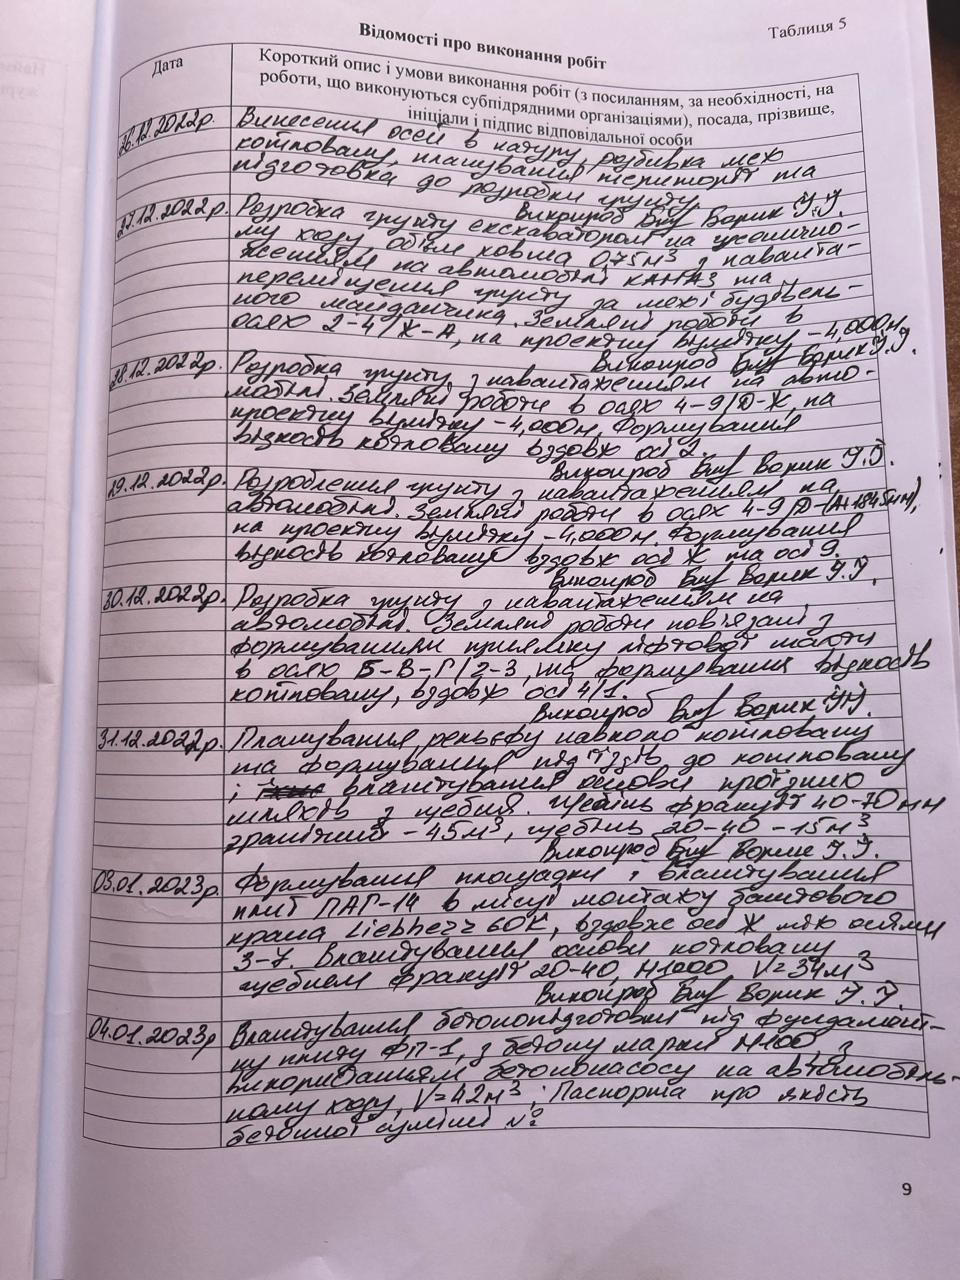 Таблиця 5
Відомості про виконання робіт
Дата
Короткий опис і умови виконання робіт (з посиланням, за необхідності, на
роботи, що виконуються субпідрядними організаціями), посада, прізвище,
ініціали і підпис відповідальної особи
26.12.2022р. Винесення осей в натуру, розбивка меж
котловану, планування території та
підготовка до розробки грунту.
Виконроб Ворик
27.12.2022р. Розробка грунту екскаватором на гусенично-
му ходу, обʼєм ковша 0,75м³ з наванта-
женням на автомобілі КАМАЗ та
переміщення грунту за межі будівель-
ного майданчика. Земляні роботи в
осях 2-4/Ж-А, на проектну відмітку -4,000м.
Виконроб Ворик
28.12.2022р. Розробка грунту з навантаженням на авто-
мобілі. Земляні роботи в осях 4-9/Д-Ж, на
проектну відмітку -4,000м. Формування
відкосів котловану вздовж осі 2.
Виконроб Ворик
29.12.2022р. Розроблення грунту з навантаженням на
автомобілі. Земляні роботи в осях 4-9/Д-(А+1845мм),
на проектну відмітку -4,000м. Формування
відкосів котловану вздовж осі Ж та осі 9.
Виконроб Ворик
30.12.2022р. Розробка грунту з навантаженням на
автомобілі. Земляні роботи повʼязані з
формуванням приямку ліфтової шахти
в осях Б-В-Г/2-3, та формування відкосів
котловану, вздовж осі 4/1.
Виконроб Ворик
31.12.2022р. Планування рельєфу навколо котловану
та формування підʼїздів до котловану
і влаштування основи проїзних
шляхів з щебня. Щебінь фракції 40-70мм
гранітний - 45м³, щебінь 20-40 - 15м³
Виконроб Ворик
03.01.2023р. Формування площадки і влаштування
плит ПАГ-14 в місці монтажу баштового
крана Liebherr 60K, вздовж осі Ж між осями
3-7. Влаштування основи котловану
щебнем фракції 20-40, М1000 V=34м³
Виконроб Ворик
04.01.2023р Влаштування бетонопідготовки під фундамент-
ну плиту ФП-1, з бетону марки М100 з
використанням бетононасосу на автомобіль-
ному ходу, V=42м³; Паспорта про якість
бетонної суміші №
9